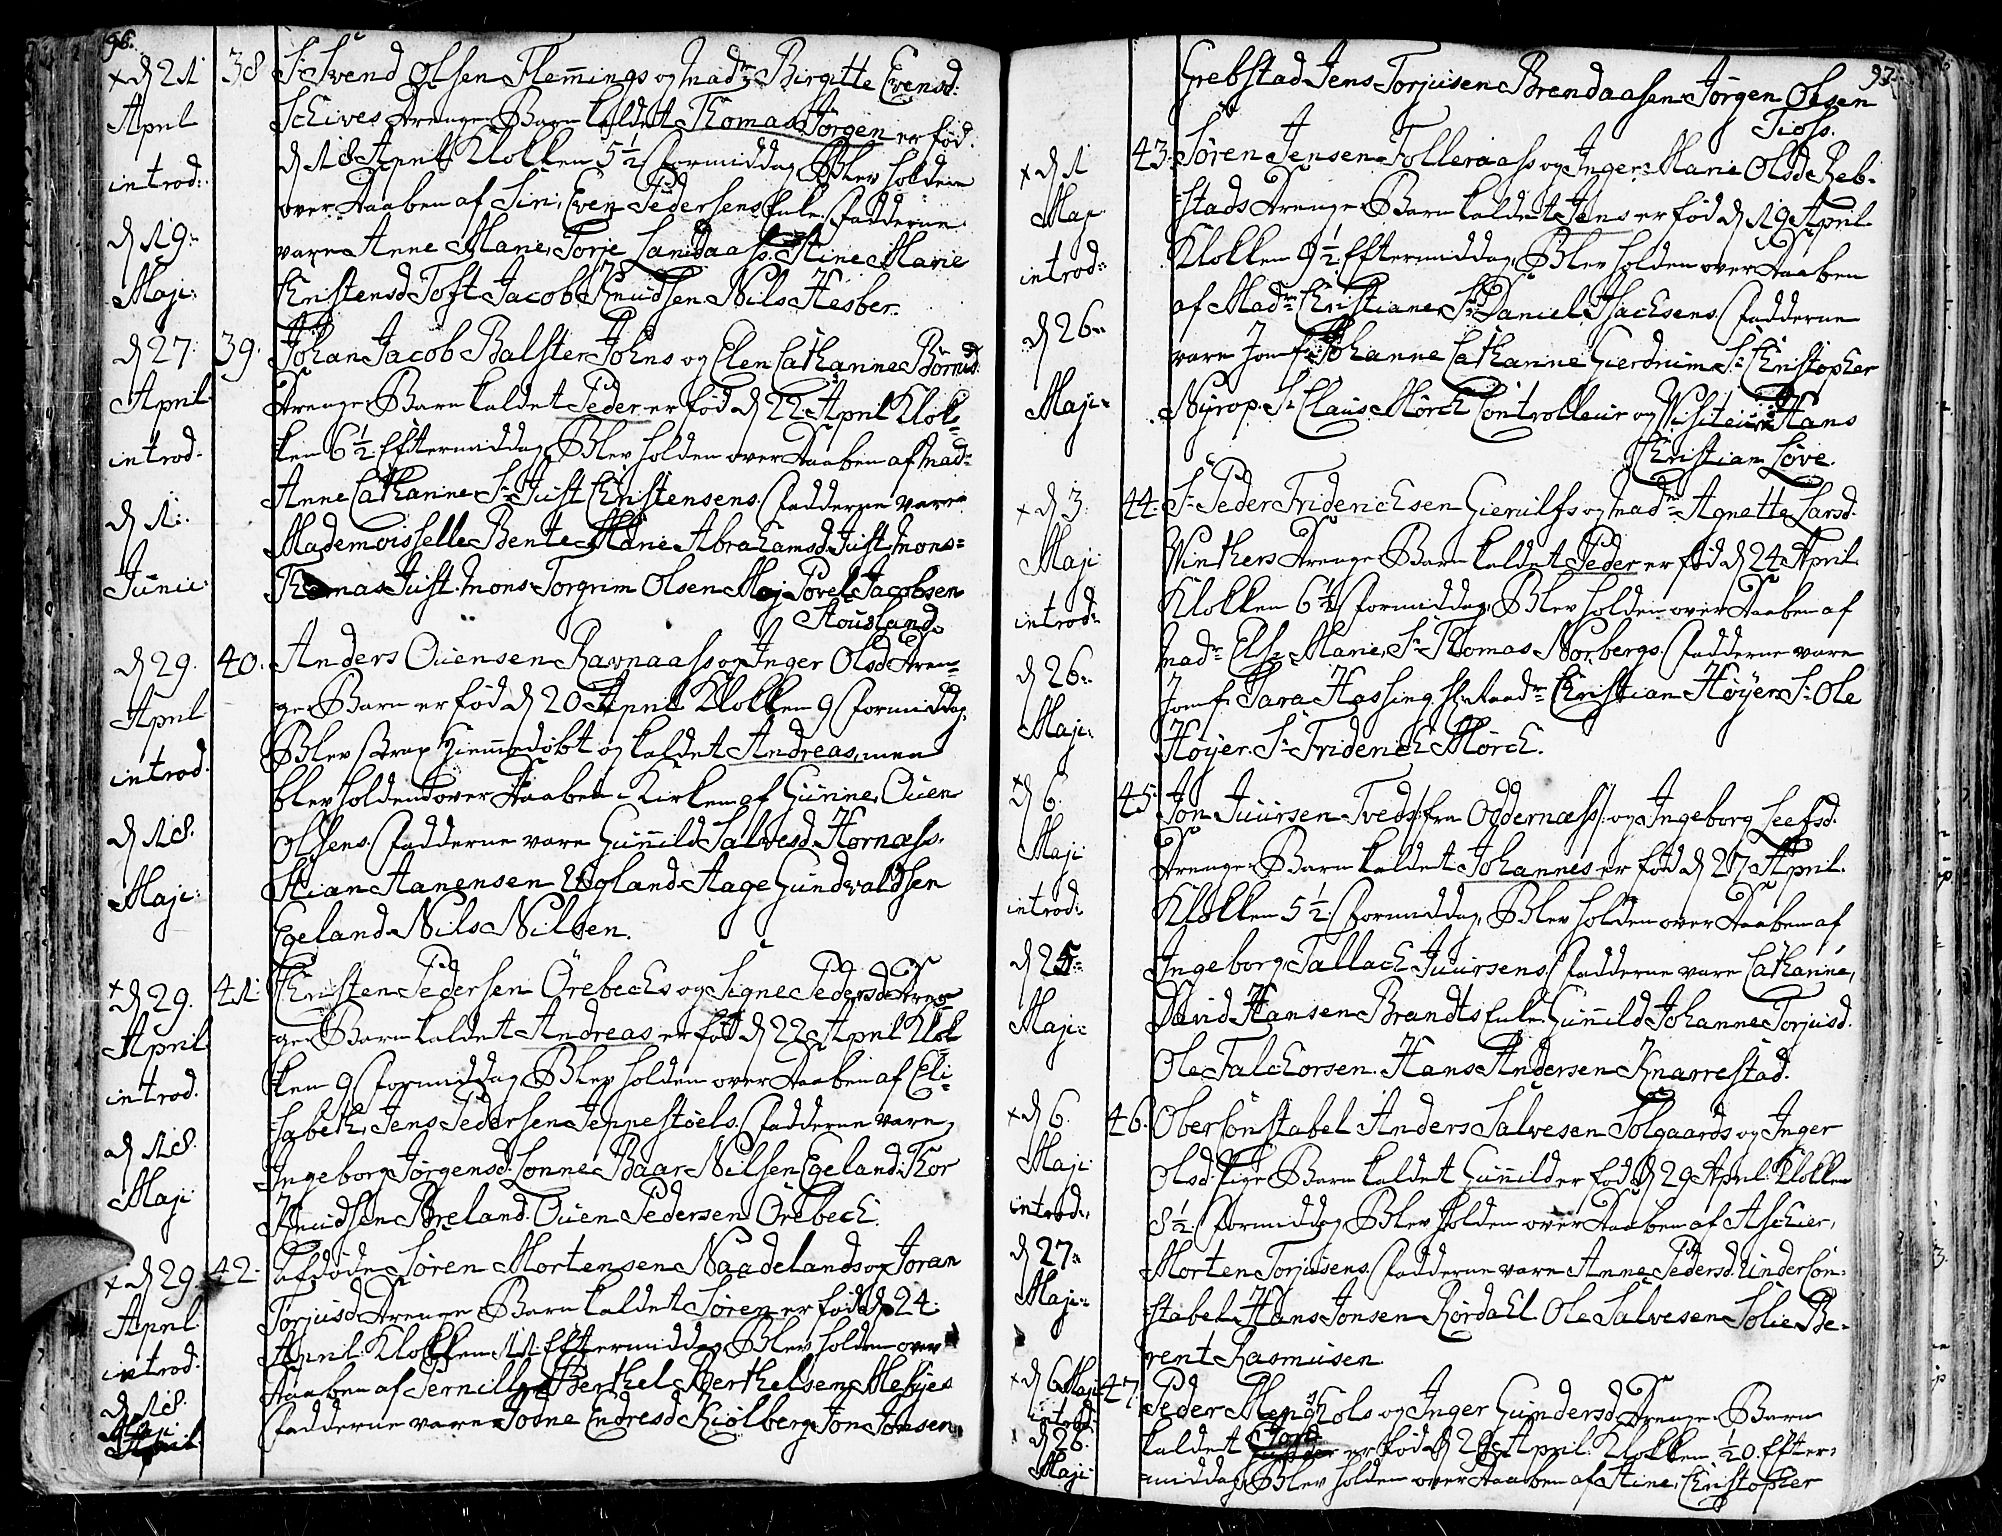 96.
x d 21 April introd: d 19 Maji:
38 Sr Svend Olsen Flemmings og Madme Birgitte Evensd:
Schives Drenge Barn kaldet Thomas Jørgen er fød
d 18 April Klokken 5½ Formiddag, Blev holden
over Daaben af Siri, Even Pedersens Enke. Fadderne
vare Anne Marie, Torje Sandaass. Stine Marie
Christensd Toft Jacob Knudsen. Nils Hesber.
d 27. April introd. d 1. Junii:
39. Johan Jacob Balster Johns og Elen Cathrine Børnes
Drenge Barn kaldet Peder er fød d 22 April Klok-
ken 6½ Eftermiddag, Blev holden over Daaben af Madme
Anne Cathrine Sr Just Christensens. Fadderne vare
Mademoiselle Bente Marie Abrahamsd Just. Mons:
Thomas Just. Mons. Torgrim Olsen Moy Povel Jacobsen
Stousland.
d 29. April introd. d 18. Maji:
40. Anders Ouensen Ravnaass og Inger Olsd Dren-
ge Barn er fød d 20 April Klokken 9 Formiddag.
Blev strax Hiemmedøbt og kaldet Andreas, men
blev holdend over Daaben i Kirken af Gunne, Ouen
Olsens. Fadderne vare Gunnild Salvesd Hornæss.
Stian Aanensen Ugland Aage Gundvaldsen
Egeland Nils Nilsen.
x d 29. April introd. d 18. Maji
41. Christen Pedersen Ørebechs og Signe Pedersd Dren-
ge Barn kaldet Andreas er fød d 22 April Klok
ken 9 Formiddag, Blev holden over Daaben af Eli-
sabeth, Jens Pedersen Jeppestøels. Fadderne vare,
Ingeborg Jørgensd. Lønne Baar Nilsen Egeland. Thor
Knudsen Støreland. Ouen Pedersen Ørebech.
x d 29 April introd. d 18. Maji
42. Afdøde Søren Mortensen Naadelands og Joran
Torjusd Drenge Barn kaldet Søren er fød d 24.
April Klokken 11 Eftermiddag, Blev holden over
Daaben af Pernille Berthel Berthelsen Mebyes
Fadderne vare Jodne Endresd Kiølberg Jon Jonsen
97.
Grebstad Jens Torjusen Brendaasen. Jørgen Olsen
Tioss.
x d 1 Maji introd: d 26. Maji.
43. Søren Jensen Følleraass og Inger Marie Olsd Reb-
stads Drenge Barn kaldet Jens er fød d 19 April
Klokken 9½ Eftermiddag, Blev holden over Daaben
af Madme Christiane, Sr Daniel Isachsens. Fadderne
vare Jomfr: Johanne Cathrine Gierdrum. Sr Christopher
Nyrop. Sr Claus Mørch Controlleur og Visiteur Hans
Christian Love.
x d 3. Maji introd. d 26. Maji.
44. Sr Peder Friderichsen Gierulfs og Madme Agnette Larsd.
Winthers Drenge Barn kaldet Peder er fød d 24 April.
Klokken 6½ Formiddag, Blev holden over Daaben af
Madme Else Marie, Sr Thomas Norbergs. Fadderne vare
Jomf: Sara Hassing. Christian Høyer. Sr Ole
Høyer. Sr Friderich Mørch.
x d 6. Maji introd: d 25. Maji.
45. Jon Juursen Tveds /:fra Oddernæss:/ og Ingeborg Leefsd.
Drenge Barn kaldet Johannes er fød d 27 April.
Klokken 5½ Formiddag, Blev holden over Daaben af
Ingeborg Tallach Juursens. Fadderne vare Cathrine,
David Hansen Brandts Enke. Gunnild Johanne Torjusd.
Ole Falchorsen. Hans Andersen Knarrestad.
x d 6. Maji introd., d 27. Maji.
46. Oberconstabel Anders Salvesen Solgaards og Inger
Olsd. Pige Barn kaldet Gunnild er fød d 29 April. Klokken
8½ Formiddag, Blev holden over Daaben af Aschier,
Morten Torjusens. Fadderne vare Anne Pedersd. Undercon-
stabel Hans Jonsen Rørdahl Ole Salvesen Solie Be-
rent Rasmusen.
x d 6 Maji introd: d 26. Maji
47. Peder Mengkols og Inger Gundersd. Drenge Barn
kaldet Tord er fød d 29 April. Klokken ½10. Efter-
middag, Blev holden over Daaben af Stine, Christopher